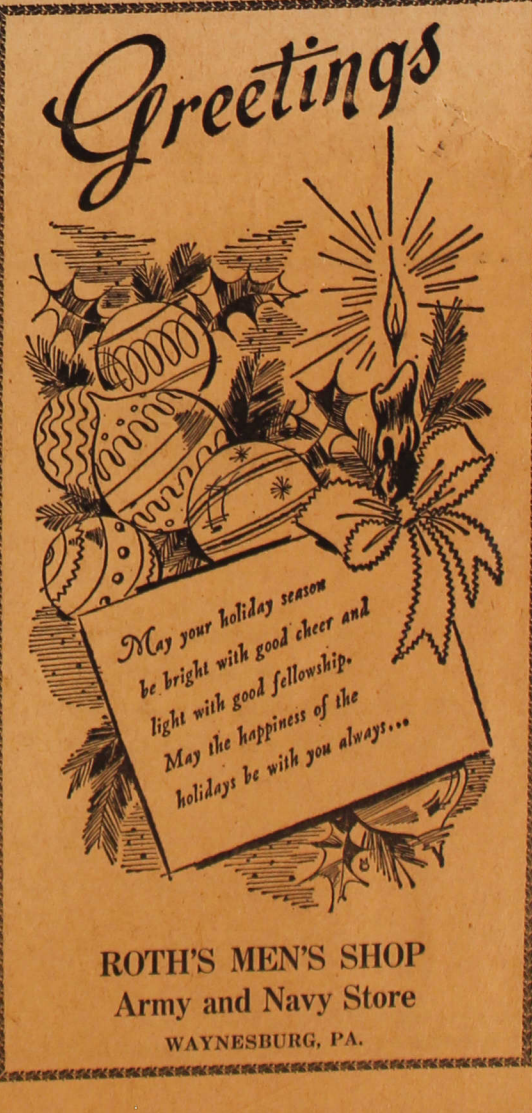 Greetings
May your holiday season
be bright with good cheer and
light with good fellowship.
May the happiness of the
holidays be with you always...
ROTH'S MEN'S SHOP
Army and Navy Store
WAYNESBURG, PA.